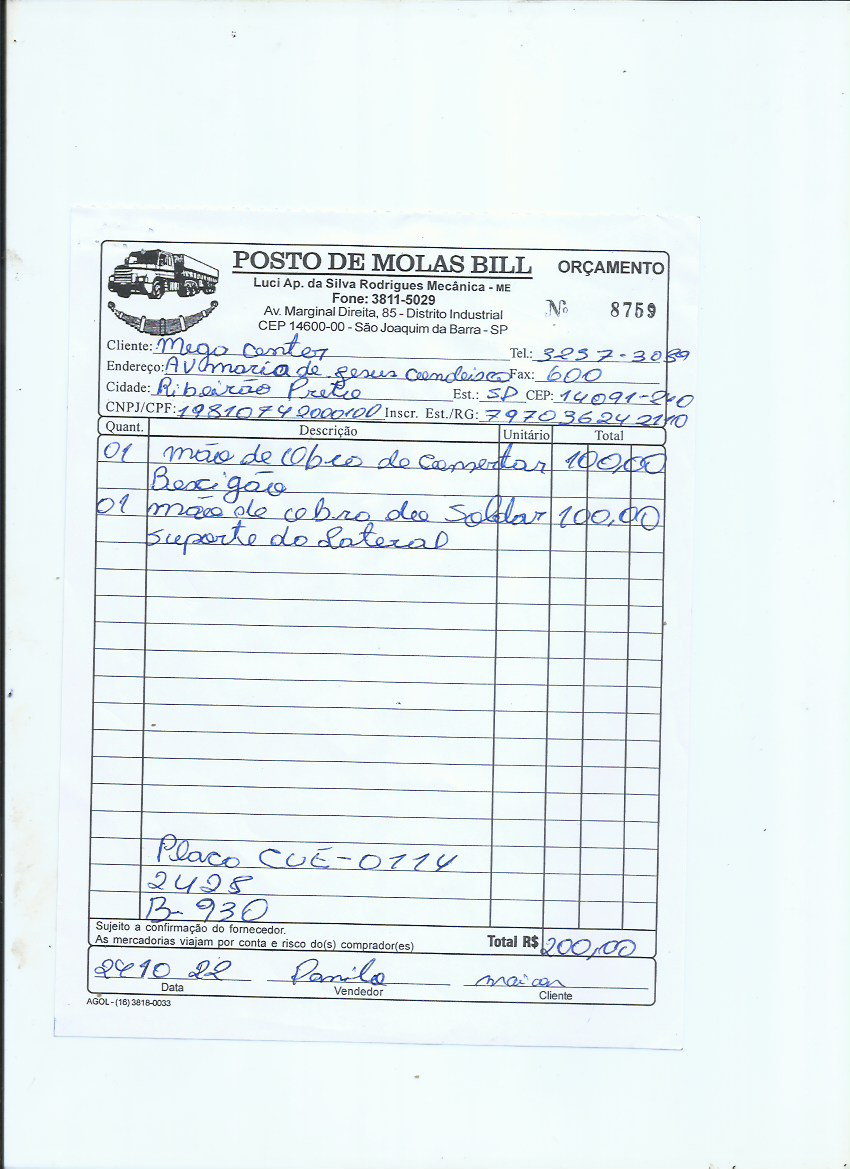 POSTO DE MOLAS BILL
ORÇAMENTO
Luci Ap. da Silva Rodrigues Mecânica - ME
Fone: 3811-5029
Av. Marginal Direita, 85 - Distrito Industrial
CEP 14600-00 - São Joaquim da Barra - SP
Nº 8759
Cliente: Mega Center Tel.:
Endereço: AV maria de jesus condeisca Fax: 600
Cidade: Ribeirão Preto Est.: SP CEP: 14091-240
CNPJ/CPF: 19810742000100 Inscr. Est./RG:
Quant. Descrição Unitário Total
01 mão de Obra de Consertar 100,00
Bexigão
01 mão de obra de Soldar 100,00
suporte do Lateral
Placa CUE-0114
2428
B-930
Sujeito a confirmação do fornecedor.
As mercadorias viajam por conta e risco do(s) comprador(es)
Total R$ 200,00
2410 22 Danilo maicon
Data Vendedor Cliente
AGOL - (16) 3818-0033